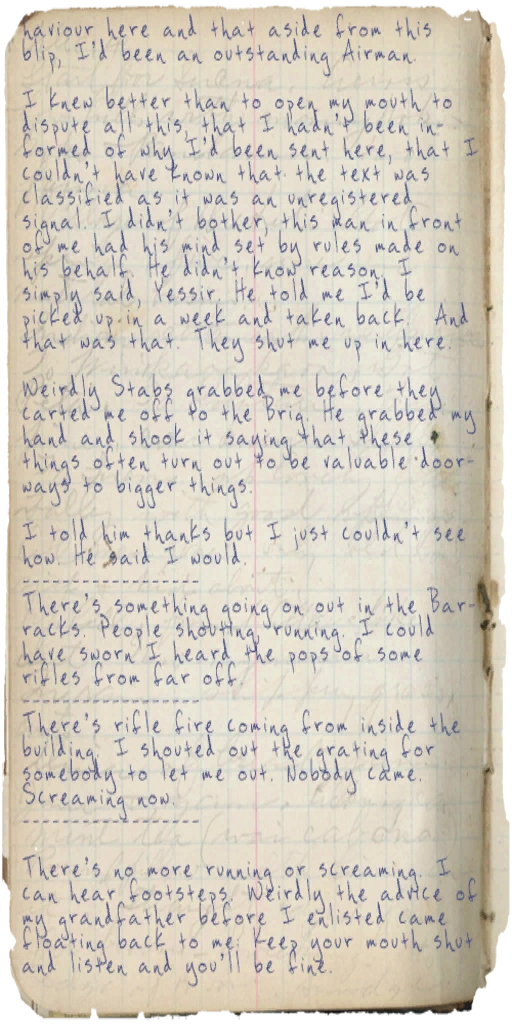 haviour here and that aside from this
blip, I'd been an outstanding Airman.
I knew better than to open my mouth to
dispute all this, that I hadn't been in-
formed of why I'd been sent here, that I
couldn't have known that the text was
classified as it was an unregistered
signal. I didn't bother, this man in front
of me had his mind set by rules made on
his behalf. He didn't know reason. I
simply said, Yessir. He told me I'd be
picked up in a week and taken back. And
that was that. They shut me up in here.
Weirdly Stabs grabbed me before they
carted me off to the Brig. He grabbed my
hand and shook it saying that these
things often turn out to be valuable door-
ways to bigger things.
I told him thanks but I just couldn't see
how. He said I would.
--------------------
There's something going on out in the Bar-
racks. People shouting, running. I could
have sworn I heard the pops of some
rifles from far off.
--------------------
There's rifle fire coming from inside the
building. I shouted out the grating for
somebody to let me out. Nobody came.
Screaming now.
--------------------
There's no more running or screaming. I
can hear footsteps. Weirdly the advice of
my grandfather before I enlisted came
floating back to me: Keep your mouth shut
and listen and you'll be fine.